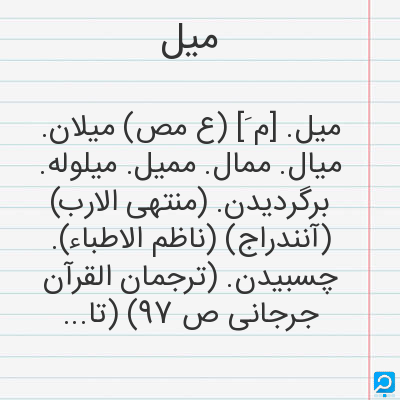 میل
میل. [م َ] (ع مص) میلان.
میال. ممال. ممیل. میلوله.
برگردیدن. (منتهی الارب)
(آنندراج) (ناظم الاطباء).
چسبیدن. (ترجمان القرآن
جرجانی ص ۹۷) (تا...